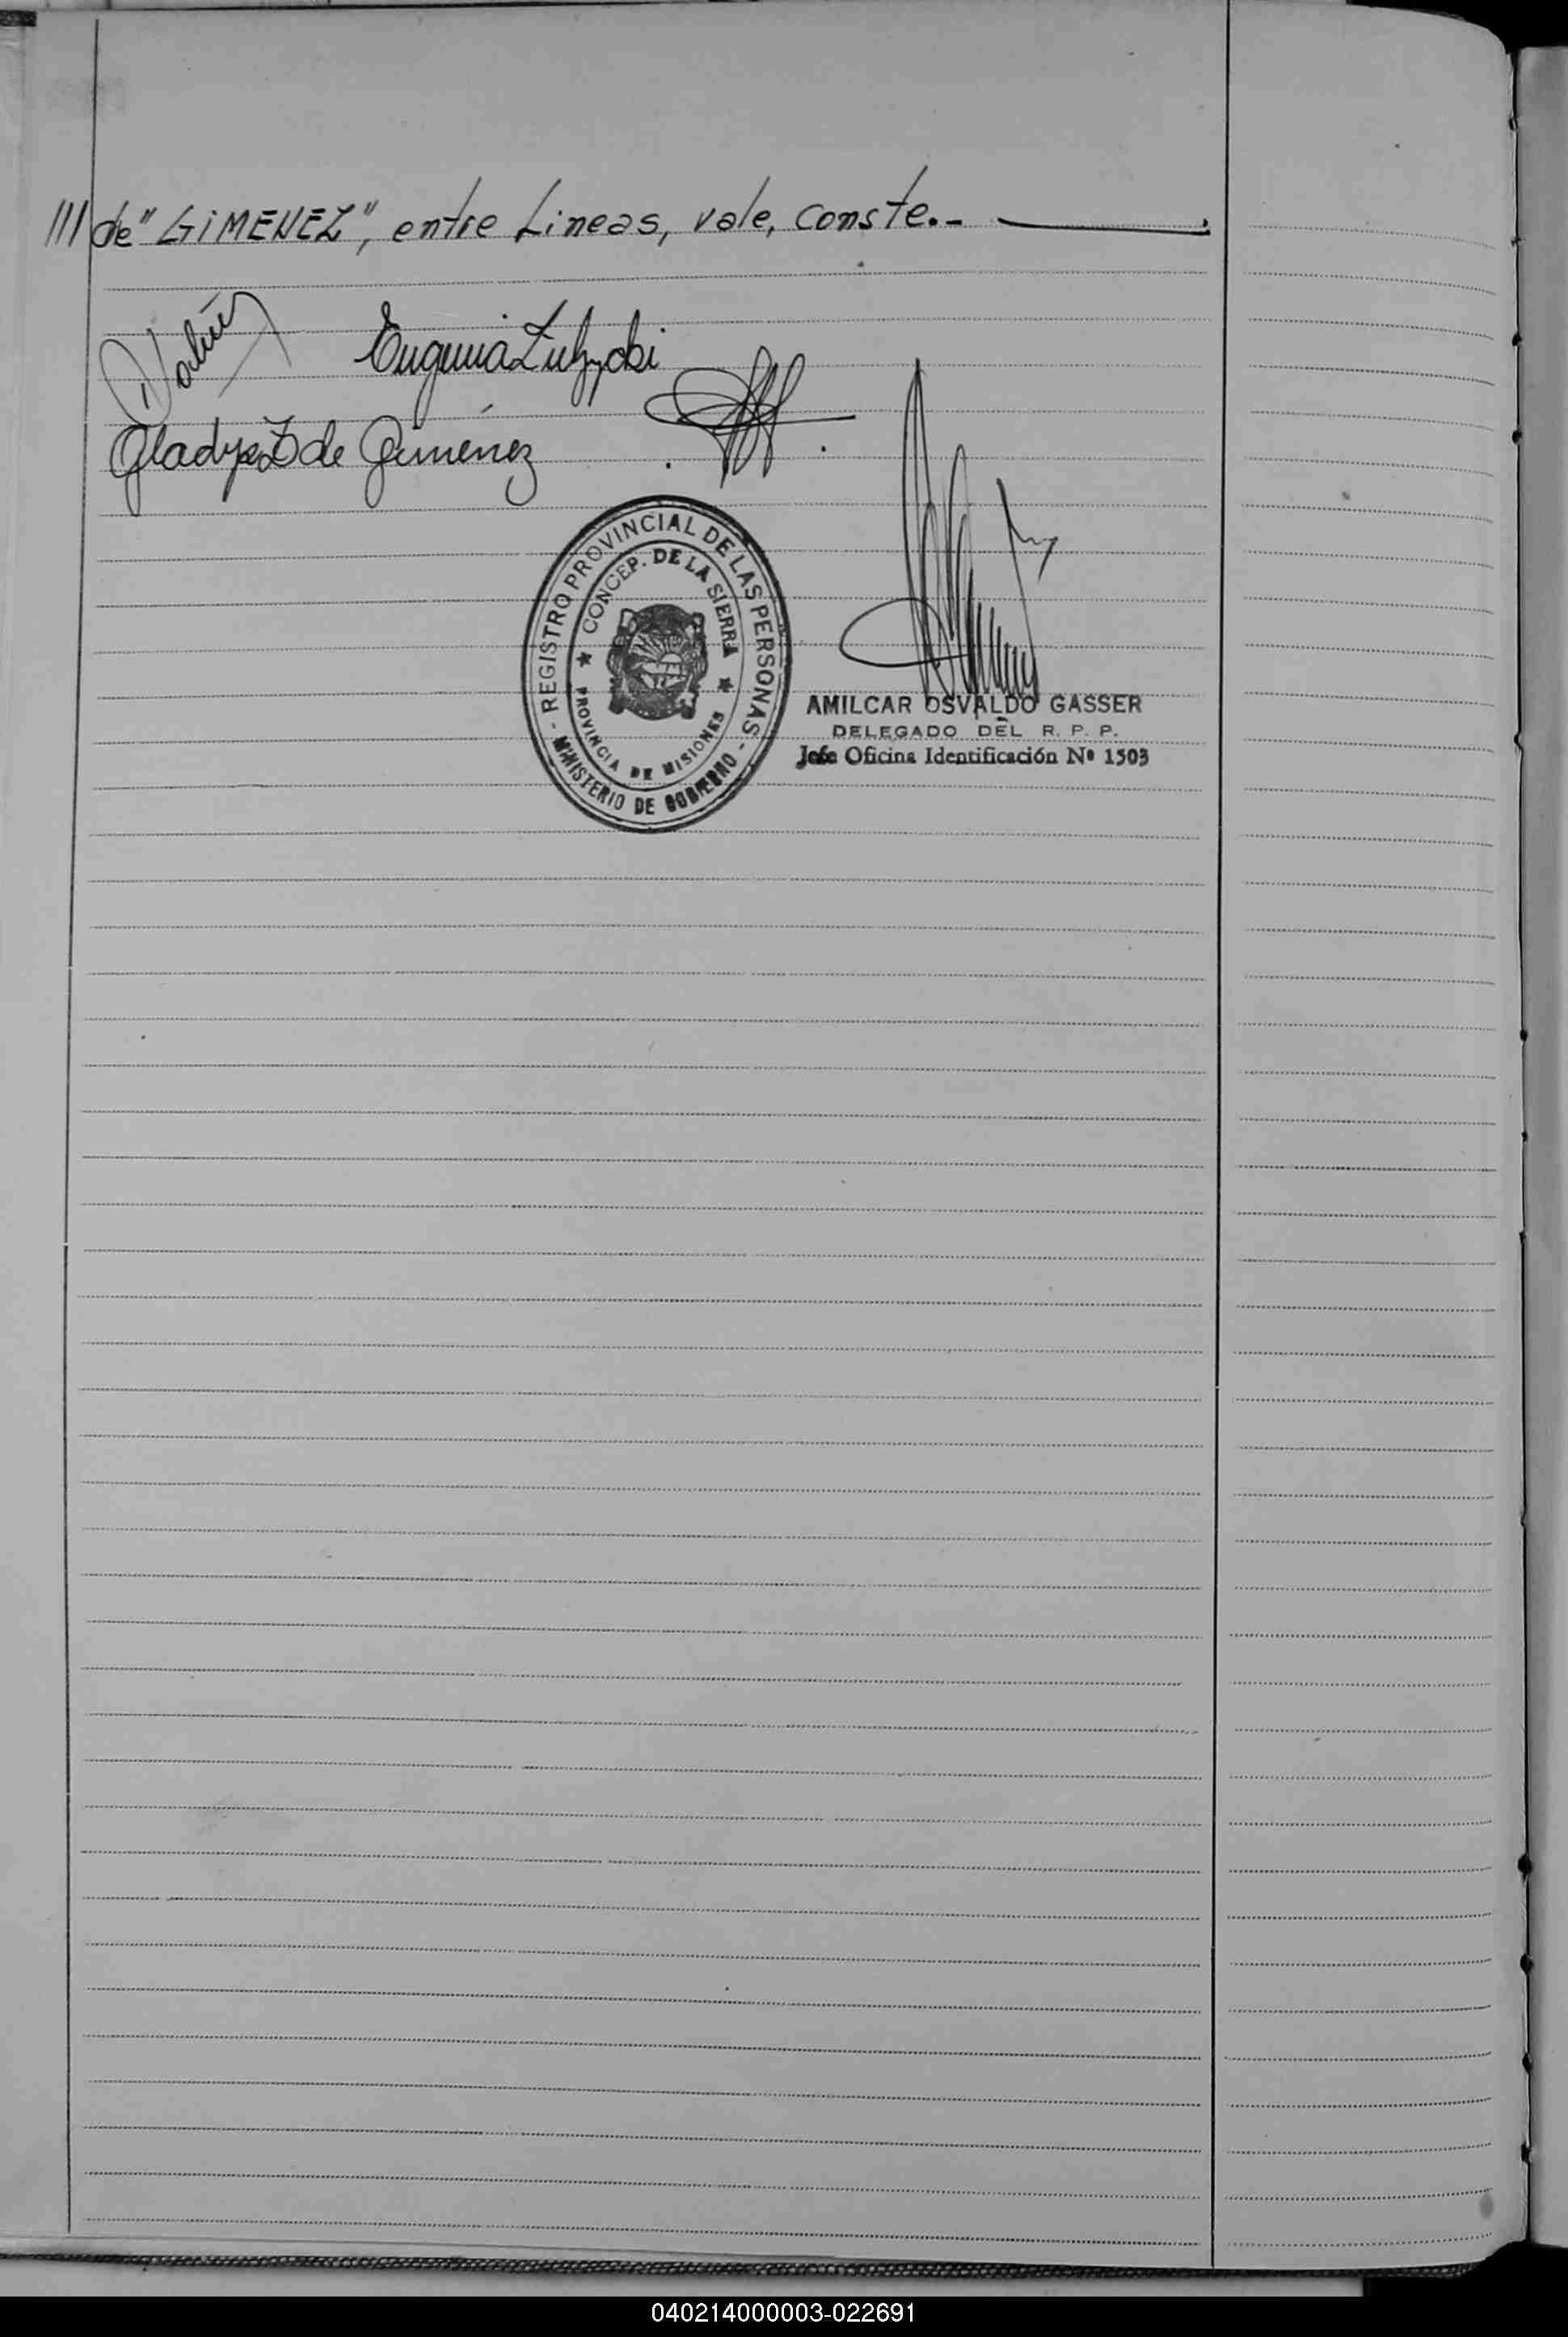 /// de "GIMENEZ", entre Lineas, vale, conste.-
Eugenia
Gladys Z de Gimenez
- REGISTRO PROVINCIAL DE LAS PERSONAS -
CONCEP. DE LA SIERRA
PROVINCIA DE MISIONES
MINISTERIO DE GOBIERNO
AMILCAR OSVALDO GASSER
DELEGADO DEL R. P. P.
Jefe Oficina Identificación Nº 1503
040214000003-022691